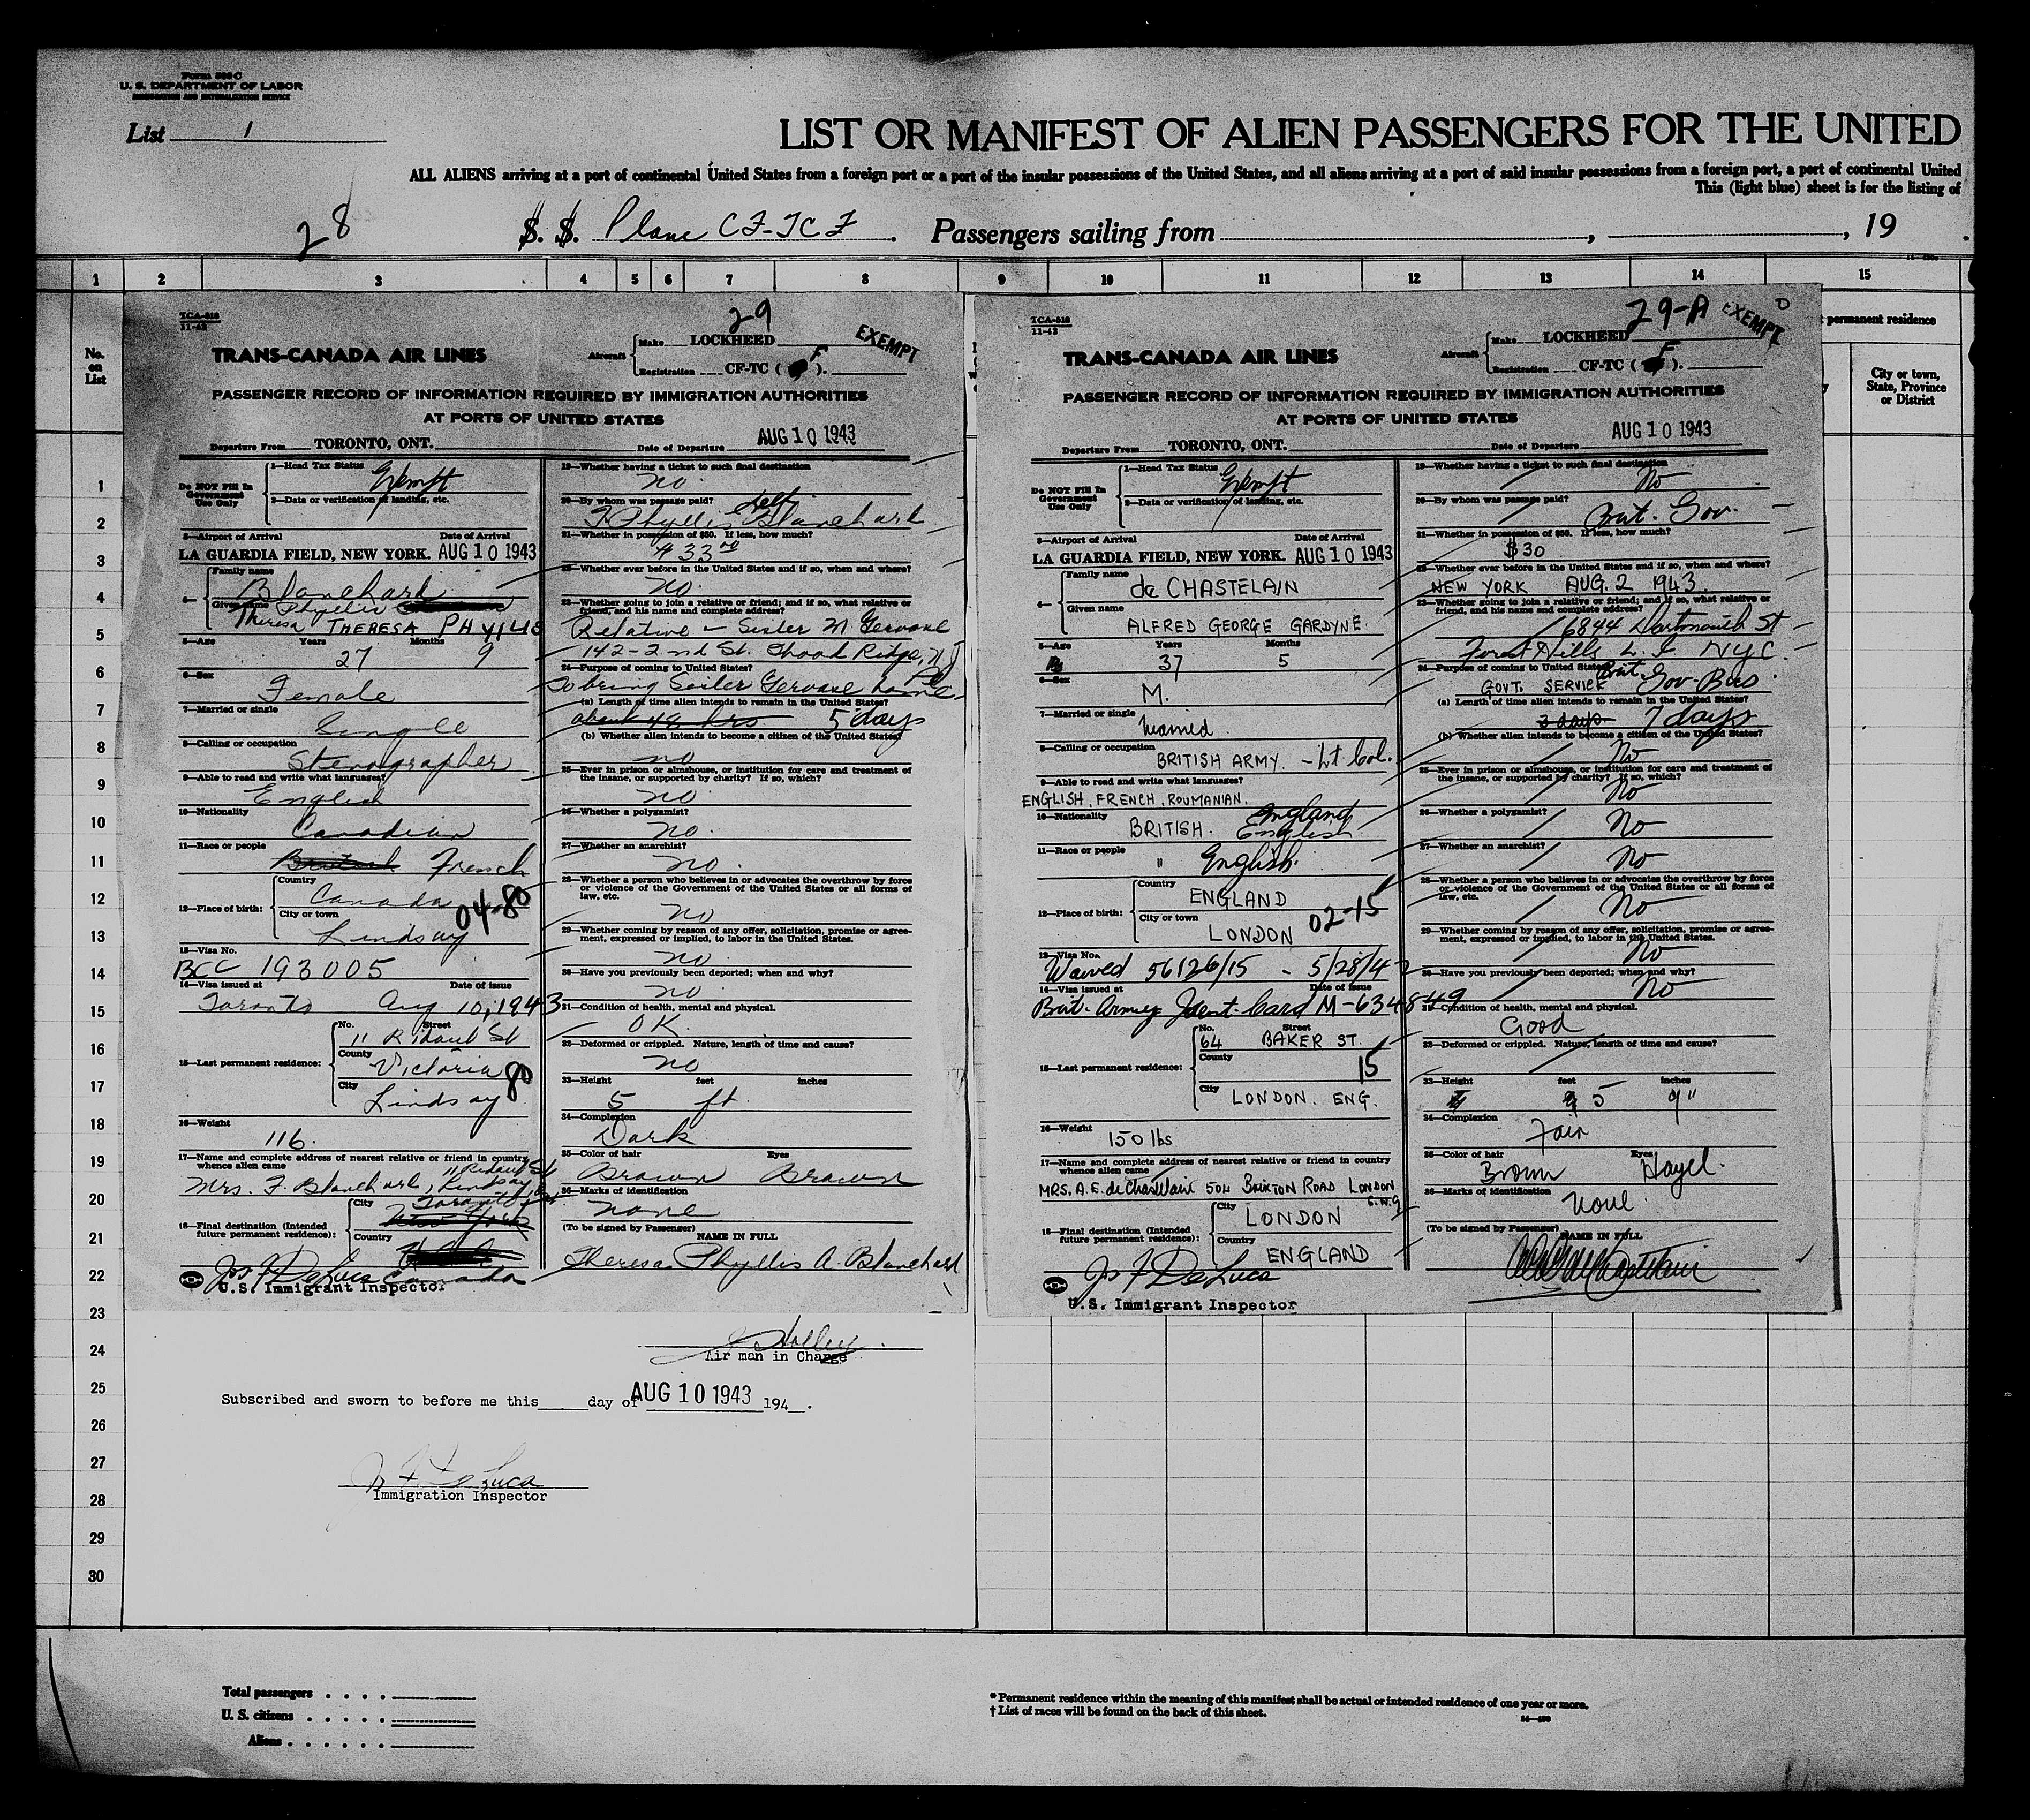 Form 500 C
U. S. DEPARTMENT OF LABOR
IMMIGRATION AND NATURALIZATION SERVICE
List 1
LIST OR MANIFEST OF ALIEN PASSENGERS FOR THE UNITED
ALL ALIENS arriving at a port of continental United States from a foreign port or a port of the insular possessions of the United States, and all aliens arriving at a port of said insular possessions from a foreign port, a port of continental United
This (light blue) sheet is for the listing of
28
S. S. Plane CF-TCF. Passengers sailing from , , 19 .
1 2 3 4 5 6 7 8 9 10 11 12 13 14 15
No. on List
permanent residence
City or town, State, Province or District
1
2
3
4
5
6
7
8
9
10
11
12
13
14
15
16
17
18
19
20
21
22
23
24
25
26
27
28
29
30
TCA-818
11-42
29
EXEMPT
TRANS-CANADA AIR LINES
Aircraft Make LOCKHEED
Registration CF-TC ( F ).
PASSENGER RECORD OF INFORMATION REQUIRED BY IMMIGRATION AUTHORITIES
AT PORTS OF UNITED STATES
Departure From TORONTO, ONT. Date of Departure AUG 10 1943
Do NOT Fill In Government Use Only
1—Head Tax Status Exempt
2—Data or verification of landing, etc.
3—Airport of Arrival Date of Arrival
LA GUARDIA FIELD, NEW YORK. AUG 10 1943
4— Family name Blanchard
Given name Phyllis
Theresa THERESA PHYLLIS
5—Age Years 27 Months 9
6—Sex Female
7—Married or single Single
8—Calling or occupation Stenographer
9—Able to read and write what languages? English
10—Nationality Canadian
11—Race or people British French
12—Place of birth: Country Canada
04-80
City or town Lindsay
13—Visa No. BCC 193005
14—Visa issued at Date of issue
Toronto Aug 10, 1943
15—Last permanent residence: No. Street 11 Rideau St
County Victoria
80
City Lindsay
16—Weight 116.
17—Name and complete address of nearest relative or friend in country whence alien came
11 Rideau St
Mrs. F. Blanchard, Lindsay
18—Final destination (Intended future permanent residence): City Toronto New York
Country Canada
Jos F DeLuca
U.S. Immigrant Inspector
19—Whether having a ticket to such final destination
no.
20—By whom was passage paid? Self
T. Phyllis Blanchard
21—Whether in possession of $50. If less, how much?
$33.00
22—Whether ever before in the United States and if so, when and where?
no.
23—Whether going to join a relative or friend; and if so, what relative or friend, and his name and complete address?
Relative - Sister M. Gervase
142-2nd St. Wood Ridge, NJ
24—Purpose of coming to United States?
To bring Sister Gervase home
(a) Length of time alien intends to remain in the United States?
about 48 hrs 5 days
(b) Whether alien intends to become a citizen of the United States?
no
25—Ever in prison or almshouse, or institution for care and treatment of the insane, or supported by charity? If so, which?
no
26—Whether a polygamist?
no.
27—Whether an anarchist?
no.
28—Whether a person who believes in or advocates the overthrow by force or violence of the Government of the United States or all forms of law, etc.
no
29—Whether coming by reason of any offer, solicitation, promise or agreement, expressed or implied, to labor in the United States.
no
30—Have you previously been deported; when and why?
no
31—Condition of health, mental and physical.
OK.
32—Deformed or crippled. Nature, length of time and cause?
no
33—Height feet inches
5 ft.
34—Complexion
Dark
35—Color of hair Eyes
Brown Brown
36—Marks of identification
none
(To be signed by Passenger) NAME IN FULL
Theresa Phyllis A. Blanchard
TCA-818
11-42
29-A
EXEMPT
D
TRANS-CANADA AIR LINES
Aircraft Make LOCKHEED
Registration CF-TC ( F ).
PASSENGER RECORD OF INFORMATION REQUIRED BY IMMIGRATION AUTHORITIES
AT PORTS OF UNITED STATES
Departure From TORONTO, ONT. Date of Departure AUG 10 1943
Do NOT Fill In Government Use Only
1—Head Tax Status Exempt
2—Data or verification of landing, etc.
3—Airport of Arrival Date of Arrival
LA GUARDIA FIELD, NEW YORK. AUG 10 1943
4— Family name de CHASTELAIN
Given name ALFRED GEORGE GARDYNE
5—Age Years 37 Months 5
6—Sex M.
7—Married or single Married
8—Calling or occupation BRITISH ARMY. - Lt. Col.
9—Able to read and write what languages?
ENGLISH, FRENCH, ROUMANIAN.
10—Nationality BRITISH. England English
11—Race or people " English.
12—Place of birth: Country ENGLAND
02-15
City or town LONDON
13—Visa No. Waived 56126/15 - 5/28/42
14—Visa issued at Date of issue
Brit. Army Ident. Card M-634849
15—Last permanent residence: No. Street 64 BAKER ST.
County
15
City LONDON. ENG.
16—Weight 150 lbs
17—Name and complete address of nearest relative or friend in country whence alien came
MRS. A.E. de Chastelain 504 BRIXTON ROAD LONDON S.W.9
18—Final destination (Intended future permanent residence): City LONDON
Country ENGLAND
Jos F DeLuca
U.S. Immigrant Inspector
19—Whether having a ticket to such final destination
No
20—By whom was passage paid?
Brit. Gov.
21—Whether in possession of $50. If less, how much?
$30
22—Whether ever before in the United States and if so, when and where?
NEW YORK AUG. 2 1943.
23—Whether going to join a relative or friend; and if so, what relative or friend, and his name and complete address?
6844 Dartmouth St
Forest Hills L. I. NYC.
24—Purpose of coming to United States?
GOVT. SERVICE Brit. Gov. Bus
(a) Length of time alien intends to remain in the United States?
3 days 7 days
(b) Whether alien intends to become a citizen of the United States?
No
25—Ever in prison or almshouse, or institution for care and treatment of the insane, or supported by charity? If so, which?
No
26—Whether a polygamist?
No
27—Whether an anarchist?
No
28—Whether a person who believes in or advocates the overthrow by force or violence of the Government of the United States or all forms of law, etc.
No
29—Whether coming by reason of any offer, solicitation, promise or agreement, expressed or implied, to labor in the United States.
No
30—Have you previously been deported; when and why?
No
31—Condition of health, mental and physical.
Good
32—Deformed or crippled. Nature, length of time and cause?
33—Height feet inches
5 9"
34—Complexion
Fair
35—Color of hair Eyes
Brown Hazel.
36—Marks of identification
None.
(To be signed by Passenger) NAME IN FULL
Air man in Charge
Subscribed and sworn to before me this day of AUG 10 1943 194 .
Jos F DeLuca
Immigration Inspector
Total passengers . . . .
U. S. citizens . . . . .
Aliens . . . . . .
* Permanent residence within the meaning of this manifest shall be actual or intended residence of one year or more.
† List of races will be found on the back of this sheet.